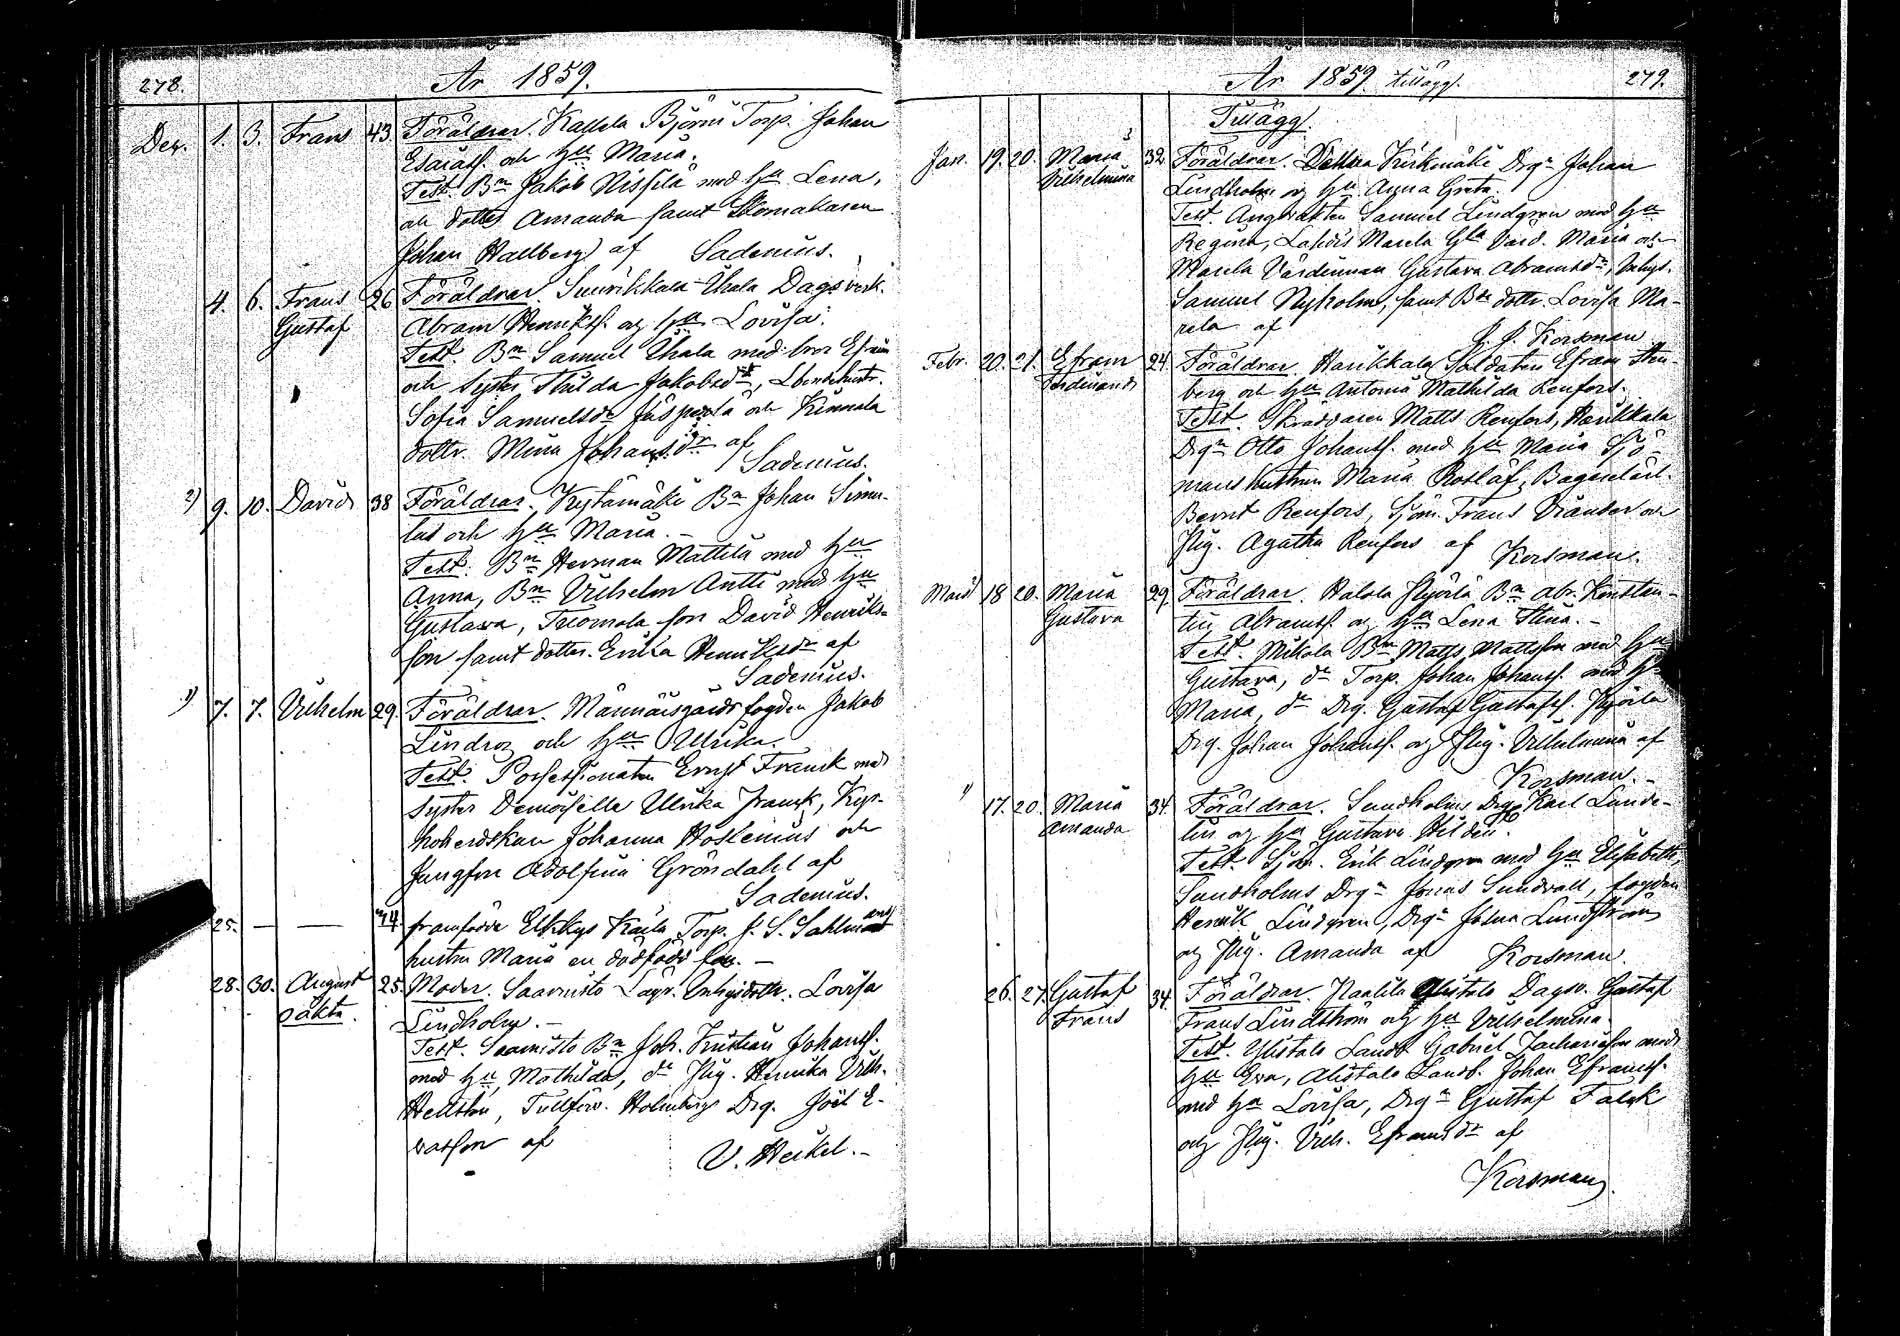 278.
År 1859.
Dec. 1. 3. Frans 43 Föräldrar. Kallela Björni Torp. Johan
Esaiass. och hu Maria.
Test. Bn Jakob Nissilä med hu Lena,
och dotter Amanda samt Skomakaren
Johan Hallberg af Sadenius.
4. 6. Frans Gustaf 26 Föräldrar. Suurikkala Uhala Dagsverk.
Abram Henrikss. og hu Lovisa.
Test. Bn Samuel Uhala med bror Efraim
och Syster Hulda Jakobsdr,
Sofia Samuelsdr och
dottr. Mina Johansdr af
Sadenius.
2) 9. 10. David 38 Föräldrar. Bn Johan Simu-
las och hu Maria.
Test. Bn Herman Mattila med hu
Anna, Bn Vilhelm Antti med hu
Gustava, Tuomola son David Henriks-
son samt dotter Erika Henriksdr af
Sadenius.
1) 7. 7. Vilhelm 29. Föräldrar. Männäisgårdsfogden Jakob
Lindroos och hu Ulrika.
Test. Possessionaten Ernst Franck med
Syster Demoiselle Ulrika Franck,
Johanna Hoslenius och
Jungfru Adolfina Gröndahl af
Sadenius.
25. — — 44. framfödde Torp. J. S. Sahlman
hustru Maria en dödfödd son. —
28. 30. August oäkta. 25. Moder. Saaristo Inhysdottr. Lovisa
Lindholm. —
Test. Saaristo Bn Joh. Kristian Johanss.
med hu Mathilda, dn Pig. Henrika Vilh.
Hellsten, Tullförv. Holmbergs Drg. Joel E-
rasson af
V. Heikel. —
År 1859. tillägg.
279.
Tillägg.
Jan. 19. 20. Maria Vilhelmina 32. Föräldrar. Kirkmäki Drgn Johan
Lindholm og hu Anna Greta.
Test. Samuel Lindgren med hu
Regina, Värd. Maria och
Värdinnan Gustava Abramsdr, Inhys.
Samuel Nyholm, samt Bn dottr. Lovisa Ma-
rela af
J. J. Korsman
Febr. 20. 21. Efraim Ferdinand 24 Föräldrar. Harikkala Soldaten Efraim Sten-
berg och hu Antonia Mathilda Renfors.
Test. Skräddaren Matts Renfors, Harikkala
Drgn Otto Johanss. med hu Maria Sjö-
mans hustrun Maria Roslöf, Bagarelärl.
Bernt Renfors, Sjöm. Frans Viander och
Pig. Agatha Renfors af Korsman.
Mars 18 20. Maria Gustava 29. Föräldrar. Hjörlä Bn Abr. Konstan-
tin Abramss. og hu Lena Stina. —
Test. Mikola Bn Matts Mattsson med hu
Gustava, dn Torp. Johan Johanss. med hu
Maria, dn Drg. Gustaf Gustafss. Hjörlä
Drg. Johan Johanss. og Pig. Vilhelmina af
Korsman. —
1) 17. 20. Maria Amanda 34. Föräldrar. Sundholms Drgn Karl Lunde-
lin og hu Gustava Hildén.
Test. Sjöm. Erik Lindgren med hu Elisabeth,
Sundholms Drgn Jonas Sundvall, fogden
Henrik Lindgren, Drgn Johan Lundström
og Pig. Amanda af Korsman.
26. 27. Gustaf Frans 34. Föräldrar. Alistalo Dagsv. Gustaf
Frans Lindström og hu Vilhelmina.
Test. Ylistalo Landb. Gabriel Zachariasson med
hu Eva, Alistalo Landb. Johan Efraimss.
med hu Lovisa, Drgn Gustaf Falck
og Pig. Vilh. Efraimsdr af
Korsman.